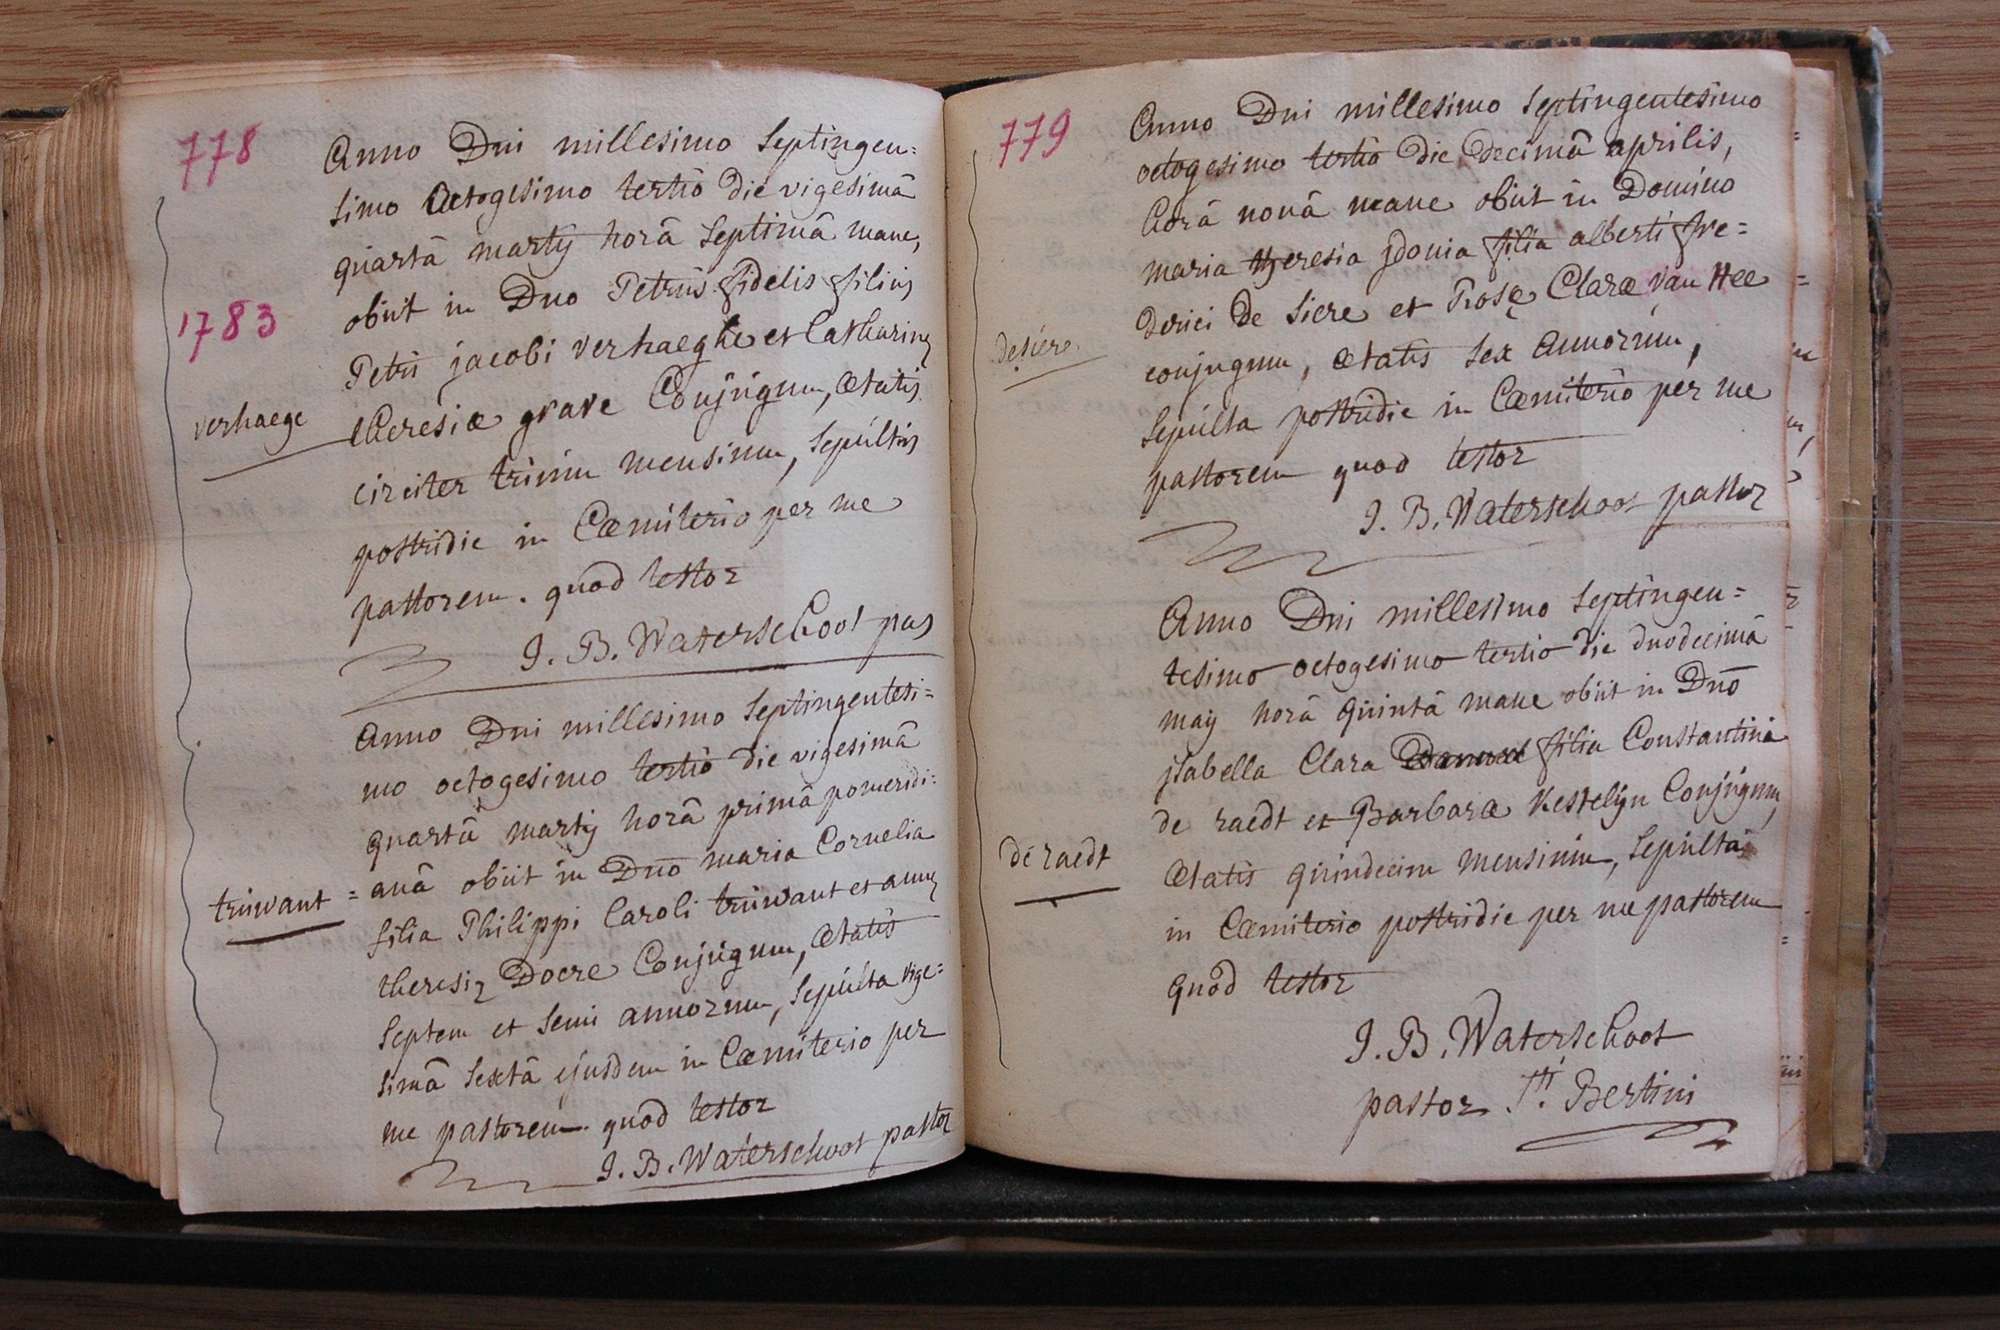 778
Anno Dni millesimo Septingen=
simo Octogesimo tertiò die vigesimâ
quartâ martÿ horâ Septimâ mane,
1783
obiit in Dno Petrus fidelis filius
Petri jacobi verhaeghe et Catharinę
verhaege
theresiæ grave Conjugum, ætatis
circiter trium mensium, Sepultus
postridie in Cæmiterio per me
pastorem. quod testor
J. B. Waterschoot pas
Anno Dni millesimo Septingentesi=
mo octogesimo tertiò die vigesimâ
quartâ martÿ horâ primâ pomeridi=
truwant
= anâ obiit in Dno maria Cornelia
filia Philippi Caroli truwant et annę
theresię Docre Conjugum, ætatis
Septem et Semi annorum, Sepulta vige=
simâ Sextâ ejusdem in Cæmiterio per
me pastorem. quod testor
J. B. Waterschoot pastor
779
Anno Dni millesimo Septingentesimo
octogesimo tertiò die decimâ aprilis,
horâ nonâ mane obiit in Domino
maria theresia jdonia filia alberti fre=
derici De Siere et Rosę Claræ van Hee
de siere
conjugum, ætatis sex annorum,
Sepulta postridie in Cæmiterio per me
pastorem quod testor
J. B. Waterschoot pastor
Anno Dni millesimo Septingen=
tesimo octogesimo tertio die duodecimâ
maÿ horâ quintâ mane obiit in Dnō
jsabella Clara filia Constantini
de raedt et Barbaræ Kestelÿn Conjugum,
de raedt
ætatis quindecim mensium, Sepulta
in Cæmiterio postridie per me pastorem
quod testor
J. B. Waterschoot
pastor Sti. Bertini